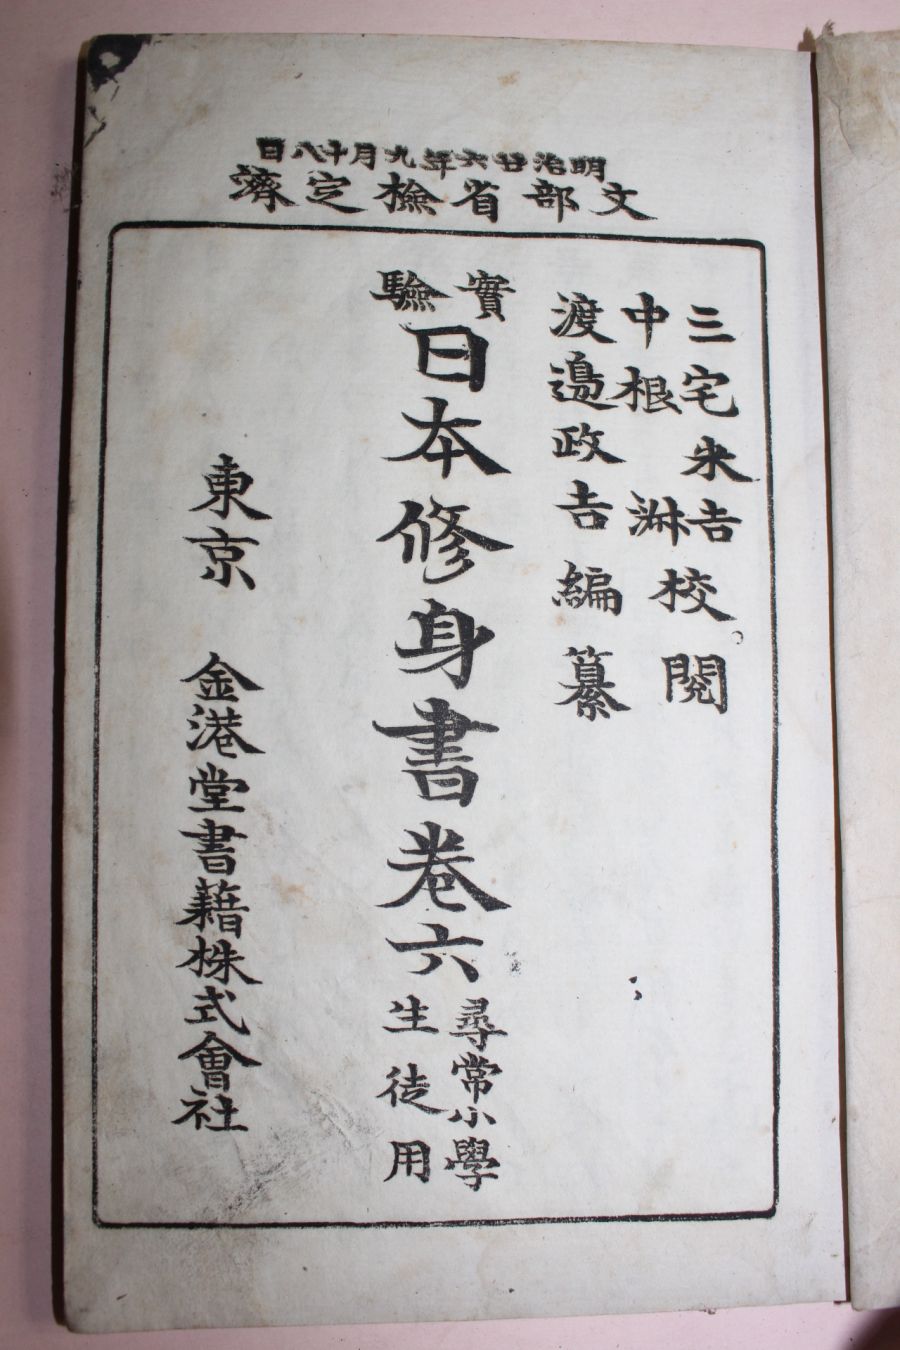 明治廿六年九月十八日
文部省檢定濟
三宅米吉
中根淋
校閱
渡邉政吉編纂
實驗
日本修身書卷六
尋常小學
生徒用
東京 金港堂書藉株式會社